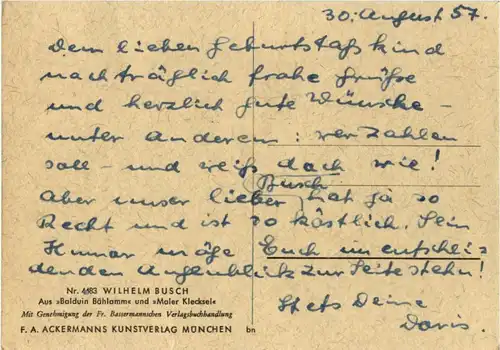 30. August 57.
Dem lieben Geburtstagskind
nachträglich frohe Grüße
und herzlich gute Wünsche –
unter anderem: wer zahlen
soll – und weiß doch wie!
Busch
Aber unser lieber hat ja so
Recht und ist so köstlich. Sein
Humor möge Euch im entschei-
denden Augenblick zur Seite stehn!
Stets Deine
Doris.
Nr. 4683 WILHELM BUSCH
Aus »Balduin Bählamm« und »Maler Klecksel«
Mit Genehmigung der Fr. Bassermannschen Verlagsbuchhandlung
F. A. ACKERMANNS KUNSTVERLAG MÜNCHEN bn